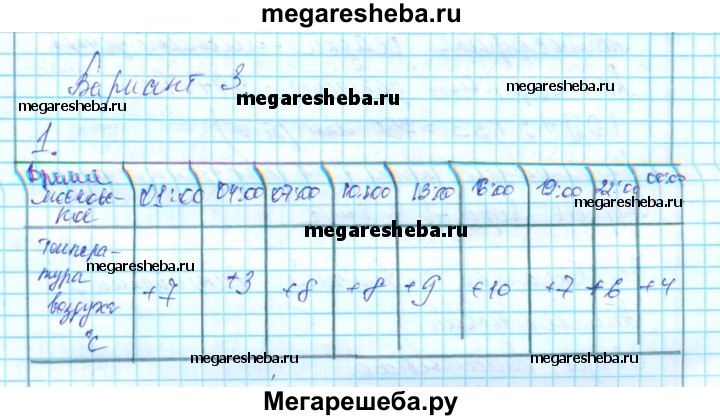 megaresheba.ru
Вариант 3.
megaresheba.ru
megaresheba.ru
megaresheba.ru
1.
Время московское 01:00 04:00 07:00 10:00 13:00 16:00 19:00 22:00 00:00
megaresheba.ru
megaresheba.ru
Температура воздуха °C +7 +3 +8 +8 +9 +10 +7 +6 +4
megaresheba.ru
megaresheba.ru
Мегарешеба.ру